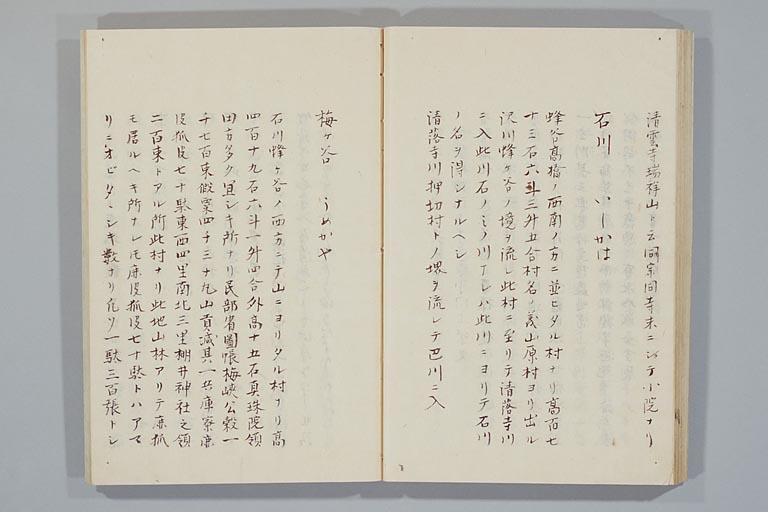 清雲寺瑞祥山ト云同宗同寺末ニシテ小院ナリ
石川　いしかは
蜂谷高橋ノ西南ノ方ニ並ヒタル村ナリ高百七
十三石六斗三升五合村名ノ義山原村ヨリ出ル
沢川蜂ヶ谷ノ境ヲ流レ此村ニ至リテ清落寺川
ニ入此川石ノミノ川ナレハ此川ニヨリテ石川
ノ名ヲ得シナルヘシ
清落寺川押切村トノ堺ヲ流レテ巴川ニ入
梅ヶ谷　うめかや
石川蜂ヶ谷ノ西方ニテ山ニヨリタル村ナリ高
四百十九石六斗一升四合外高十五石真珠院領
田方多ク宜シキ所ナリ民部省図帳梅峡公穀一
千七百束假粟四千三十丸山貢減其一兵庫寮鹿
皮狐皮七十駄東西四里南北三里棚井神社之領
二百束トアル所此村ナリ此地山林アリテ鹿狐
モ居ルヘキ所ナレトモ鹿皮狐皮七十駄トハアマ
リニオビタヽシキ数ナリ凡ソ一駄三百張トシ